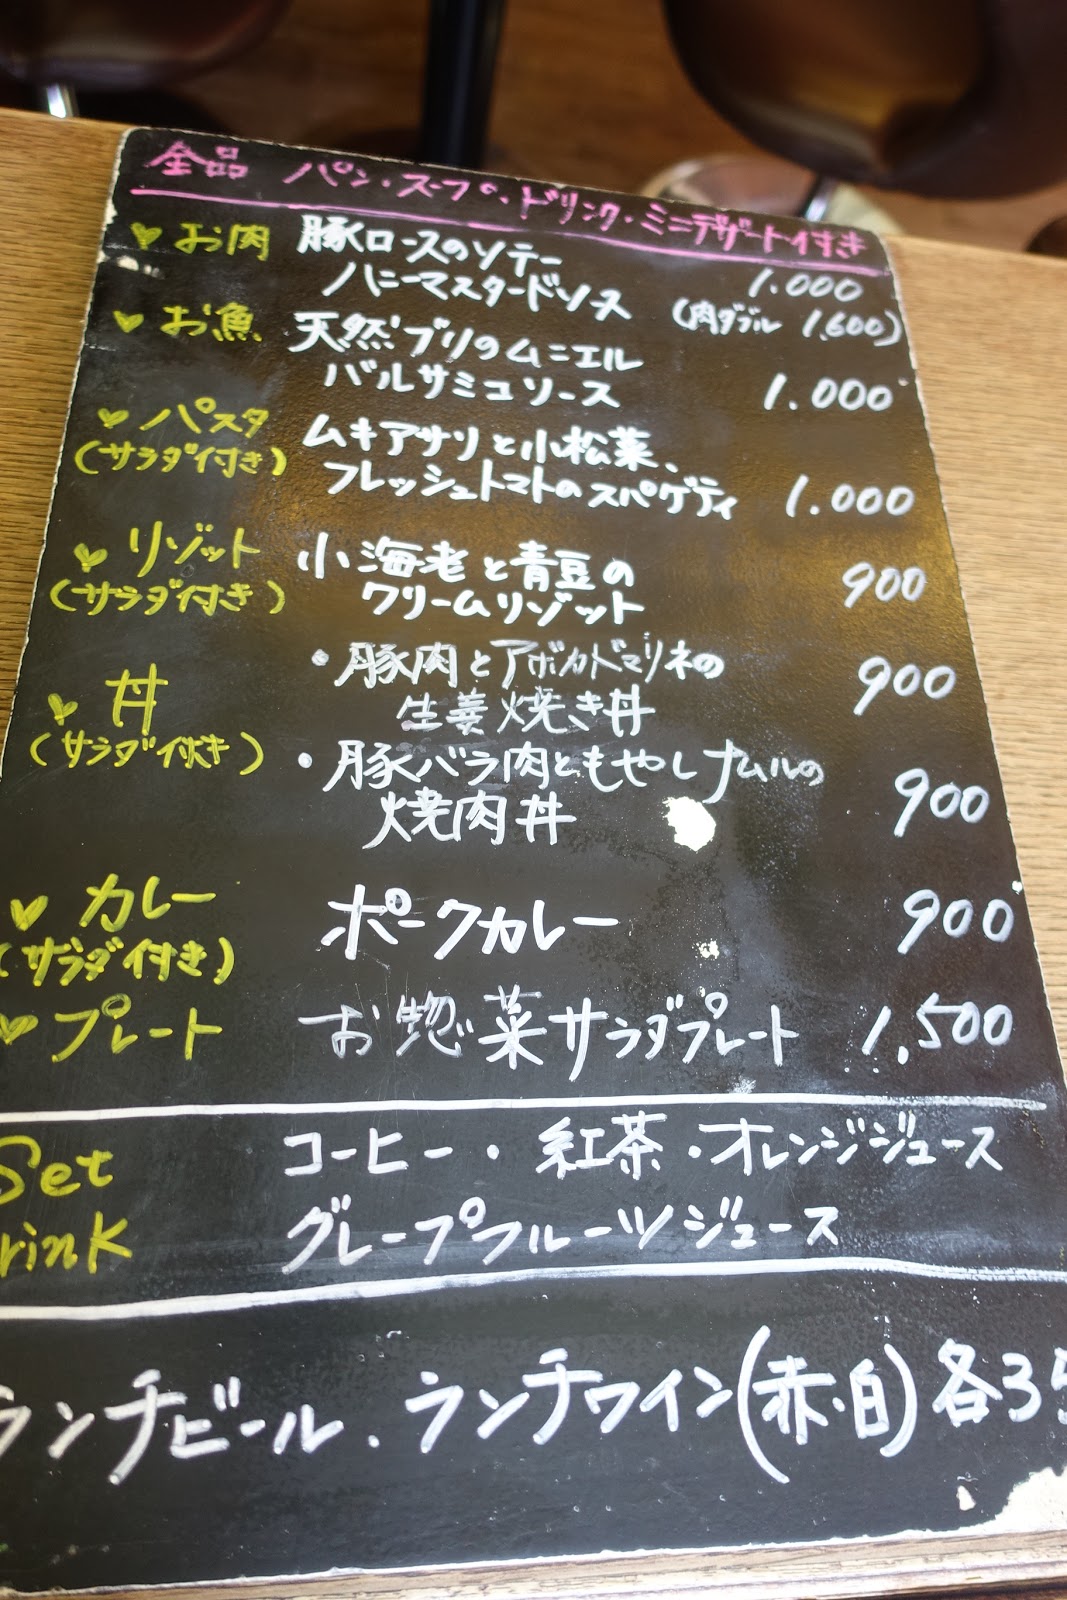 全品 パン・スープ・ドリンク・ミニデザート付き
お肉 豚ロースのソテー
ハニーマスタードソース 1.000
(肉ダブル 1,600)
お魚 天然ブリのムニエル
バルサミコソース 1.000
パスタ ムキアサリと小松菜、
(サラダ付き) フレッシュトマトのスパゲティ 1.000
リゾット 小海老と青豆の 900
(サラダ付き) クリームリゾット
丼 ・豚肉とアボカドマリネの 900
(サラダ付き) 生姜焼き丼
・豚バラ肉ともやしナムルの 900
焼肉丼
カレー ポークカレー 900
(サラダ付き)
プレート お惣菜サラダプレート 1,500
Set コーヒー・紅茶・オレンジジュース
rink グレープフルーツジュース
ランチビール、ランチワイン(赤・白)各35